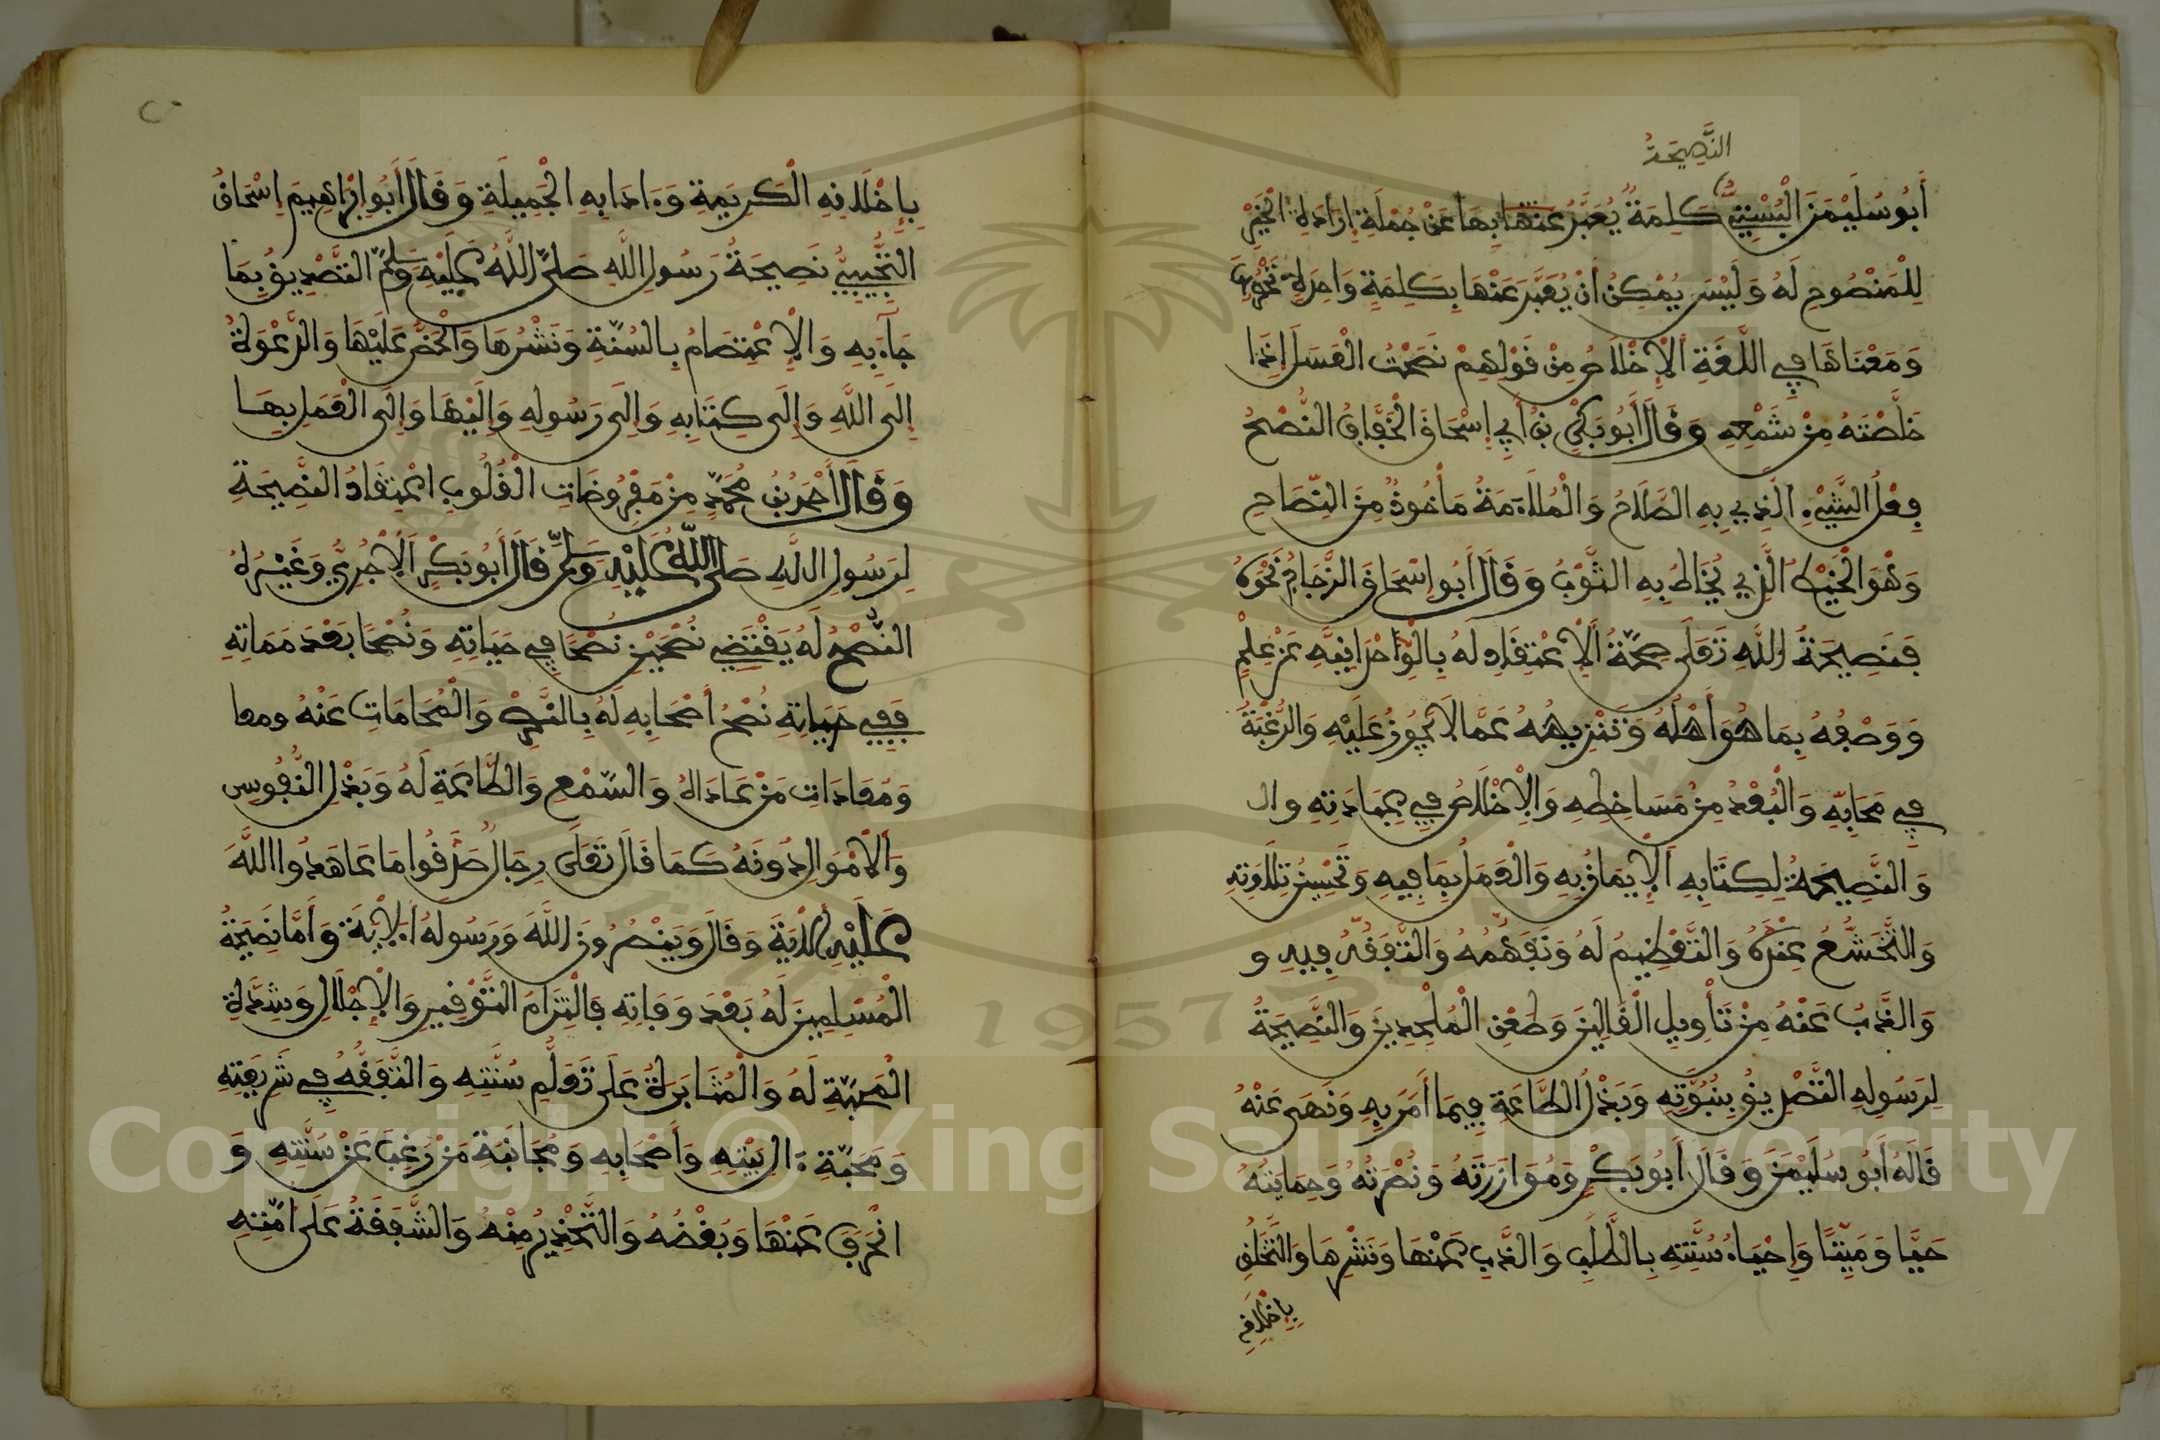 النَّصِيحَةُ
أَبُو سُلَيْمَنَ الْبُسْتِيُّ كَلِمَةٌ يُعَبَّرُ عَنْهَا بِهَا عَنْ جُمْلَةِ إِرَادَةِ الْخَيْرِ
لِلْمَنْصُوحِ لَهُ وَلَيْسَ يُمْكِنُ أَنْ يُعَبَّرَ عَنْهَا بِكَلِمَةٍ وَاحِدَةٍ تَحْصُرُهَا
وَمَعْنَاهَا فِي اللُّغَةِ الْإِخْلَاصُ مِنْ قَوْلِهِمْ نَصَحْتُ الْعَسَلَ إِذَا
خَلَّصْتَهُ مِنْ شَمْعِهِ وَقَالَ أَبُو بَكْرِ بْنُ أَبِي إِسْحَاقَ الْخَفَّافُ النُّصْحُ
فِعْلُ الشَّيْءِ الَّذِي بِهِ الصَّلَاحُ وَالْمُلَاءَمَةُ مَأْخُوذٌ مِنَ النِّصَاحِ
وَهْوَ الْخَيْطُ الَّذِي يُخَاطُ بِهِ الثَّوْبُ وَقَالَ أَبُو إِسْحَاقَ الزَّجَّاجُ نَحْوَهُ
فَنَصِيحَةُ اللَّهِ تَعَلَى صِحَّةُ الْإِعْتِقَادِ لَهُ بِالْوَاحْدَانِيَّةِ عَنْ عِلْمٍ
وَوَصْفُهُ بِمَا هُوَ أَهْلُهُ وَتَنْزِيهُهُ عَمَّا لَا يَجُوزُ عَلَيْهِ وَالرَّغْبَةُ
فِي مَحَابِّهِ وَالْبُعْدُ مِنْ مَسَاخِطِهِ وَالْإِخْلَاصُ فِي عِبَادَتِهِ وال
وَالنَّصِيحَةُ لِكِتَابِهِ الْإِيمَانُ بِهِ وَالْعَمَلُ بِمَا فِيهِ وَتَحْسِينُ تِلَاوَتِهِ
وَالتَّخَشُّعُ عِنْدَهُ وَالتَّعْظِيمُ لَهُ وَتَفَهُّمُهُ وَالتَّفَقُّهُ فِيهِ و
وَالذَّبُّ عَنْهُ مِنْ تَأْوِيلِ الْغَالِينَ وَطَعْنِ الْمُلْحِدِينَ وَالنَّصِيحَةُ
لِرَسُولِهِ التَّصْدِيقُ بِنُبُوَّتِهِ وَبَذْلُ الطَّاعَةِ فِيمَا أَمَرَ بِهِ وَنَهَى عَنْهُ
قَالَهُ أَبُو سُلَيْمَنَ وَقَالَ أَبُو بَكْرٍ وَمُوَازَرَتُهُ وَنُصْرَتُهُ وَحِمَايَتُهُ
حَيًّا وَمَيِّتًا وَإِحْيَاءُ سُنَّتِهِ بِالطَّلَبِ وَالذَّبِّ عَنْهَا وَنَشْرِهَا وَالتَّخَلُّقُ
بِإِخْلَاقِهِ
٢٠
بِإِخْلَاقِهِ الْكَرِيمَةِ وَءَادَابِهِ الْجَمِيلَةِ وَقَالَ أَبُو إِبْرَاهِيمَ إِسْحَاقُ
التُّجِيبِيُّ نَصِيحَةُ رَسُولِ اللَّهِ صَلَّى اللَّهُ عَلَيْهِ وَسَلَّمَ التَّصْدِيقُ بِمَا
جَآءَ بِهِ وَالْإِعْتِصَامُ بِالسُّنَّةِ وَنَشْرُهَا وَالْحَضُّ عَلَيْهَا وَالدَّعْوَةُ
إِلَى اللَّهِ وَإِلَى كِتَابِهِ وَإِلَى رَسُولِهِ وَإِلَيْهَا وَإِلَى الْعَمَلِ بِهَا
وَقَالَ أَحْمَدُ بْنُ مُحَمَّدٍ مِنْ مَفْرُوضَاتِ الْقُلُوبِ اعْتِقَادُ النَّصِيحَةِ
لِرَسُولِ اللَّهِ صَلَّى اللَّهُ عَلَيْهِ وَسَلَّمَ قَالَ أَبُو بَكْرٍ الْآجُرِّيُّ وَغَيْرُهُ
النُّصْحُ لَهُ يَقْتَضِي نُصْحَيْنِ نُصْحًا فِي حَيَاتِهِ وَنُصْحًا بَعْدَ مَمَاتِهِ
فَفِي حَيَاتِهِ نُصْحُ أَصْحَابِهِ لَهُ بِالنَّصْرِ وَالْمُحَامَاتِ عَنْهُ ومعا
وَمُعَادَاتِ مَنْ عَادَاهُ وَالسَّمْعِ وَالطَّاعَةِ لَهُ وَبَذْلِ النُّفُوسِ
وَالْأَمْوَالِ دُونَهُ كَمَا قَالَ تَعَلَى رِجَالٌ صَدَقُوا مَا عَاهَدُوا اللَّهَ
عَلَيْهِ الْآيَةَ وَقَالَ وَيَنْصُرُونَ اللَّهَ وَرَسُولَهُ الْآيَةَ وَأَمَّا نَصِيحَةُ
الْمُسْلِمِينَ لَهُ بَعْدَ وَفَاتِهِ فَالْتِزَامُ التَّوْقِيرِ وَالْإِجْلَالِ وَشِدَّةِ
الْمَحَبَّةِ لَهُ وَالْمُثَابَرَةُ عَلَى تَعَلُّمِ سُنَّتِهِ وَالتَّفَقُّهِ فِي شَرِيعَتِهِ
وَمَحَبَّةِ ءَالِ بَيْتِهِ وَأَصْحَابِهِ وَمُجَانَبَةِ مَنْ رَغِبَ عَنْ سُنَّتِهِ وَ
انْحَرَفَ عَنْهَا وَبُغْضُهُ وَالتَّحْذِيرُ مِنْهُ وَالشَّفَقَةُ عَلَى أُمَّتِهِ
1957
Copyright © King Saud University